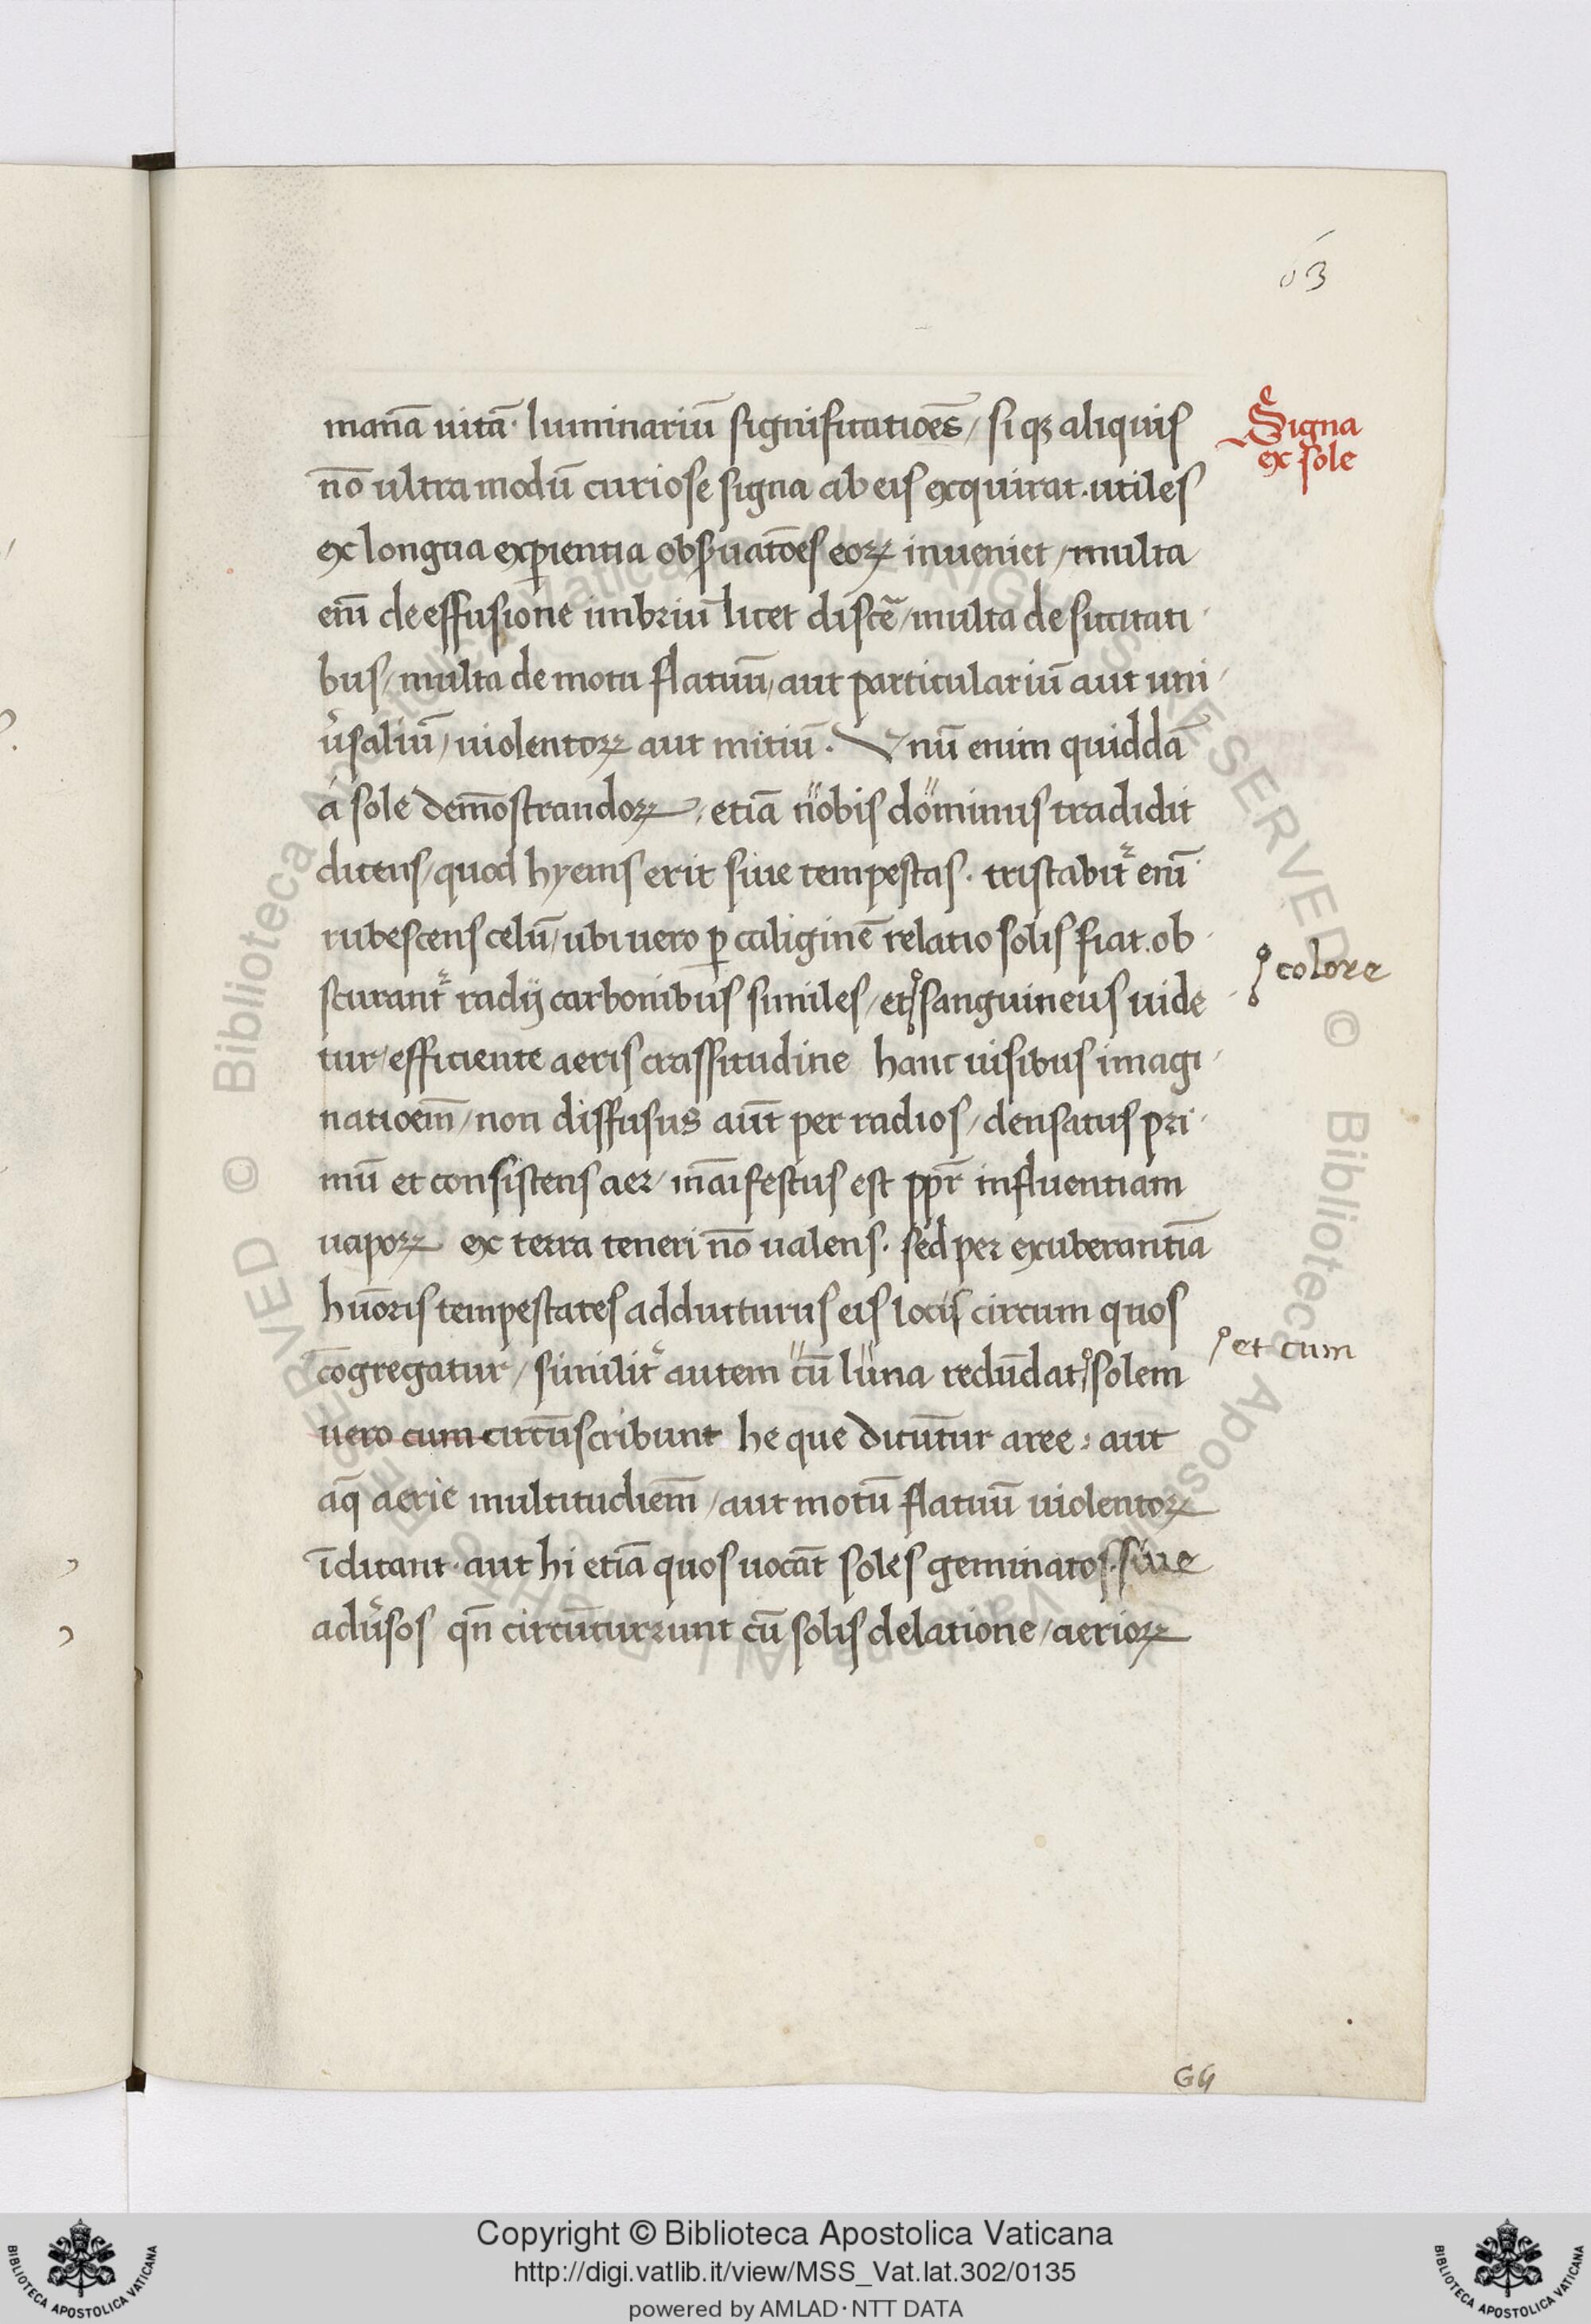 63
manā uitā· luminariū significatiōes / si qꝫ aliquis
Signa
nō ultra modū curiose signa ab eis exquirat · utiles
ex sole
ex longua exꝑientia obẜuatōes eoꝝ inueniet / multa
enī de effusione imbriū licet discē / multa de siccitati
bus / multa de motu flatuū / aut particulariū aut uni
u̓saliū / uiolentoꝝ aut mitiū . Vnū enim quiddā
a sole demōstrandoꝝ / etiā nobis dominus tradidit
dicens / quod hyems erit siue tempestas · tristabit᷑ enī
rubescens celū / ubi uero ꝑ caliginē relatio solis fiat . ob
colore
scurant᷑ radij carbonibus similes / et sanguineus uide
tur / efficiente aeris crassitudine hanc uisibus imagi
natioem̄ / non diffusus aūt per radios / densatus pri
mū et consistens aer / māifestus est ꝓpt̄ influentiam
uapoꝝ ex terra teneri nō ualens · sed per exuberantiā
hūoris tempestates adducturus eis locis circum quos
et cum
cōgregatur / similit᷑ autem cū luna redūdat solem
uero cum circūscribunt he que dicūtur aree : aut
aq̄ aerie multitudiem̄ / aut motū flatuū uiolentoꝝ
īdicant · aut hi etiā quos uocāt soles geminatos · siue
adu̓sos qn̄ circūcurrunt cū solis delatione / aerioꝝ
G4
Copyright © Biblioteca Apostolica Vaticana
http://digi.vatlib.it/view/MSS_Vat.lat.302/0135
powered by AMLAD·NTT DATA